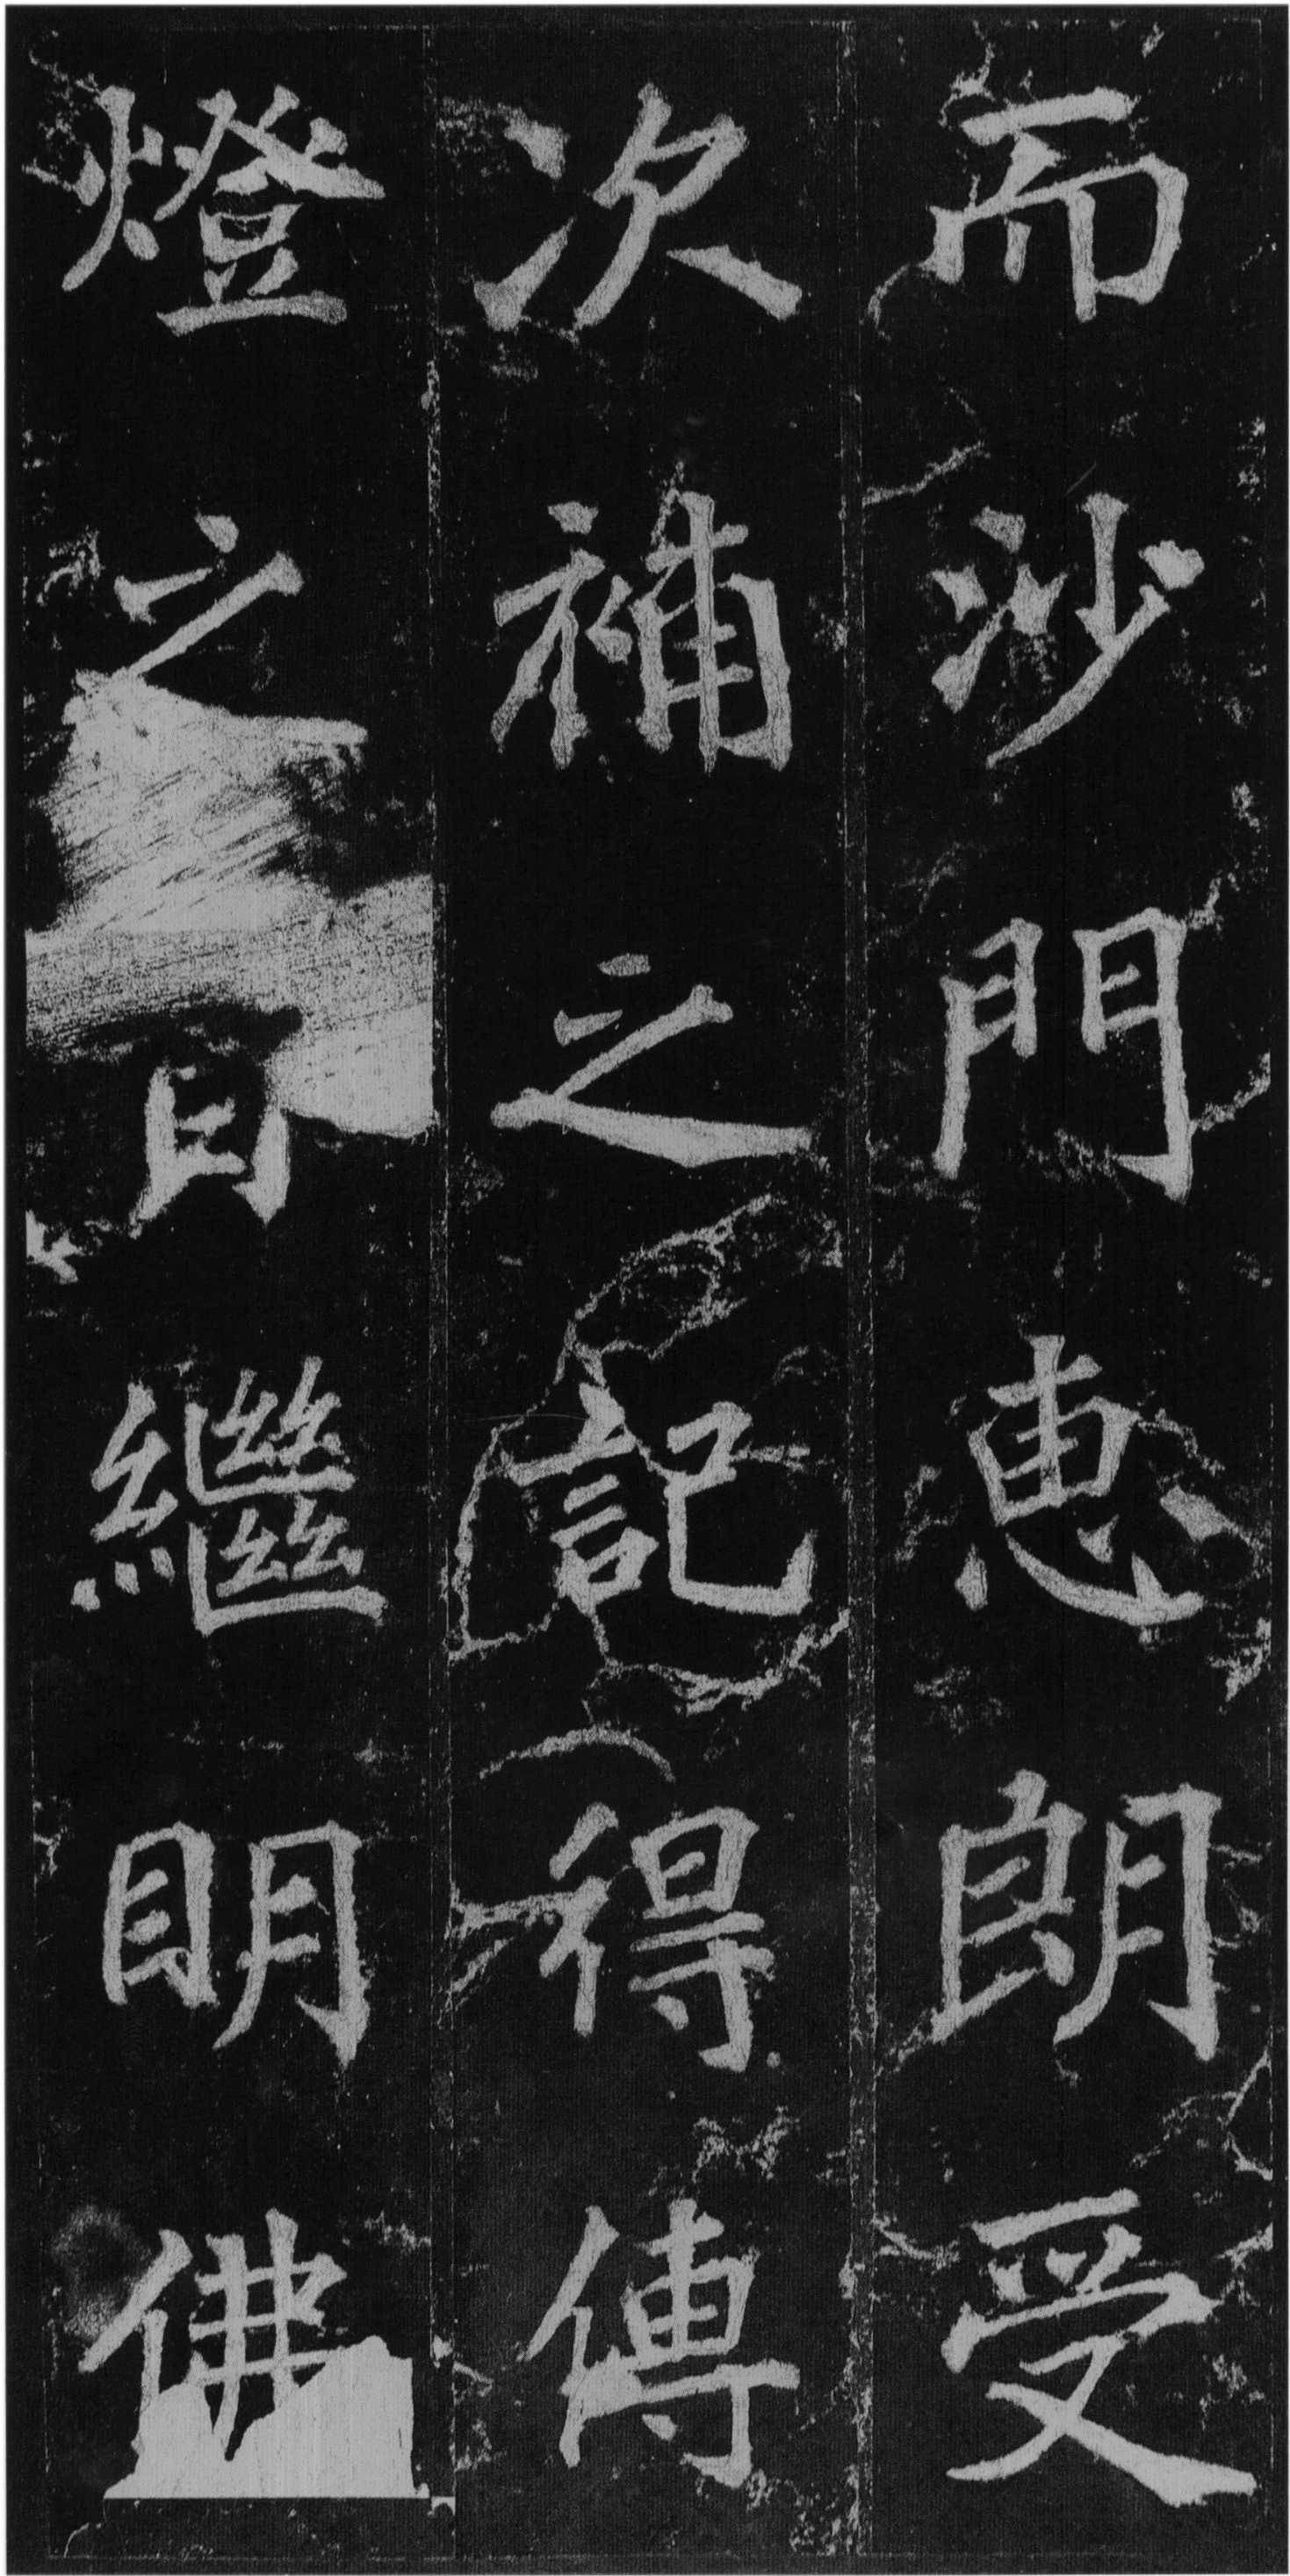 而沙門惠朗受
次補之記得傳
燈之百繼明佛